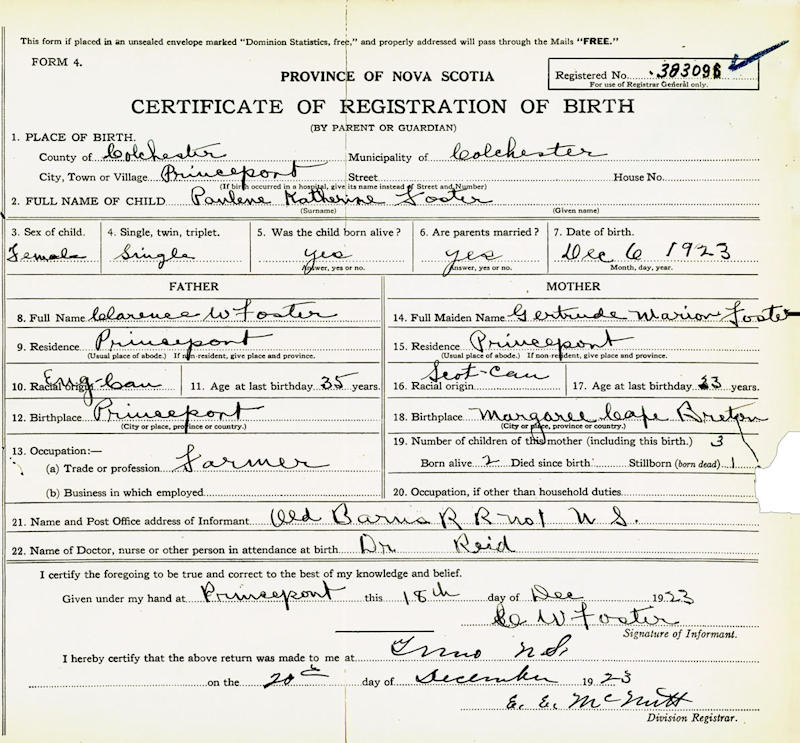 This form if placed in an unsealed envelope marked "Dominion Statistics, free," and properly addressed will pass through the Mails "FREE."
FORM 4.
PROVINCE OF NOVA SCOTIA
Registered No. 383096
For use of Registrar General only.
CERTIFICATE OF REGISTRATION OF BIRTH
(BY PARENT OR GUARDIAN)
1. PLACE OF BIRTH.
County of Colchester Municipality of Colchester
City, Town or Village Princeport Street House No.
(If birth occurred in a hospital, give its name instead of Street and Number)
2. FULL NAME OF CHILD Paulene Katherine Foster
(Surname) (Given name)
3. Sex of child. 4. Single, twin, triplet. 5. Was the child born alive? 6. Are parents married? 7. Date of birth.
Female Single yes yes Dec 6 1923
Answer, yes or no. Answer, yes or no. Month, day, year.
FATHER MOTHER
8. Full Name Clarence W Foster 14. Full Maiden Name Gertrude Marion Foster
9. Residence Princeport 15. Residence Princeport
(Usual place of abode.) If non-resident, give place and province. (Usual place of abode.) If non-resident, give place and province.
10. Racial origin Eng-Can 11. Age at last birthday 35 years. 16. Racial origin Scot-Can 17. Age at last birthday 33 years.
12. Birthplace Princeport 18. Birthplace Margaree Cape Breton
(City or place, province or country.) (City or place, province or country.)
13. Occupation:— 19. Number of children of this mother (including this birth.) 3
(a) Trade or profession Farmer Born alive 2 Died since birth Stillborn (born dead) 1
(b) Business in which employed 20. Occupation, if other than household duties
21. Name and Post Office address of Informant Old Barns R R no 1 N S.
22. Name of Doctor, nurse or other person in attendance at birth Dr Reid
I certify the foregoing to be true and correct to the best of my knowledge and belief.
Given under my hand at Princeport this 18th day of Dec 1923
C W Foster
Signature of Informant.
I hereby certify that the above return was made to me at Truro N.S.
on the 20th day of December 1923
E. E. McNutt
Division Registrar.